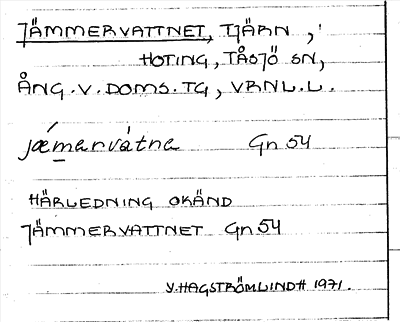 JÄMMERVATTNET, TJÄRN,
HOTING, TÅSJÖ SN,
ÅNG.V.DOMS.TG, VRNL.L.
jæmərvátnə Gn 54
HÄRLEDNING OKÄND
JÄMMERVATTNET Gn 54
V.HAGSTRÖMLINDH 1971.